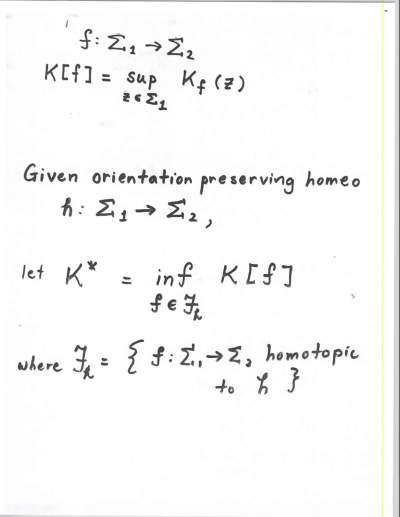 f: Σ₁ → Σ₂
K[f] = sup K_f(z)
z ∈ Σ₁
Given orientation preserving homeo
h: Σ₁ → Σ₂,
let K* = inf K[f]
f ∈ ℱ_h
where ℱ_h = { f: Σ₁ → Σ₂ homotopic
to h }